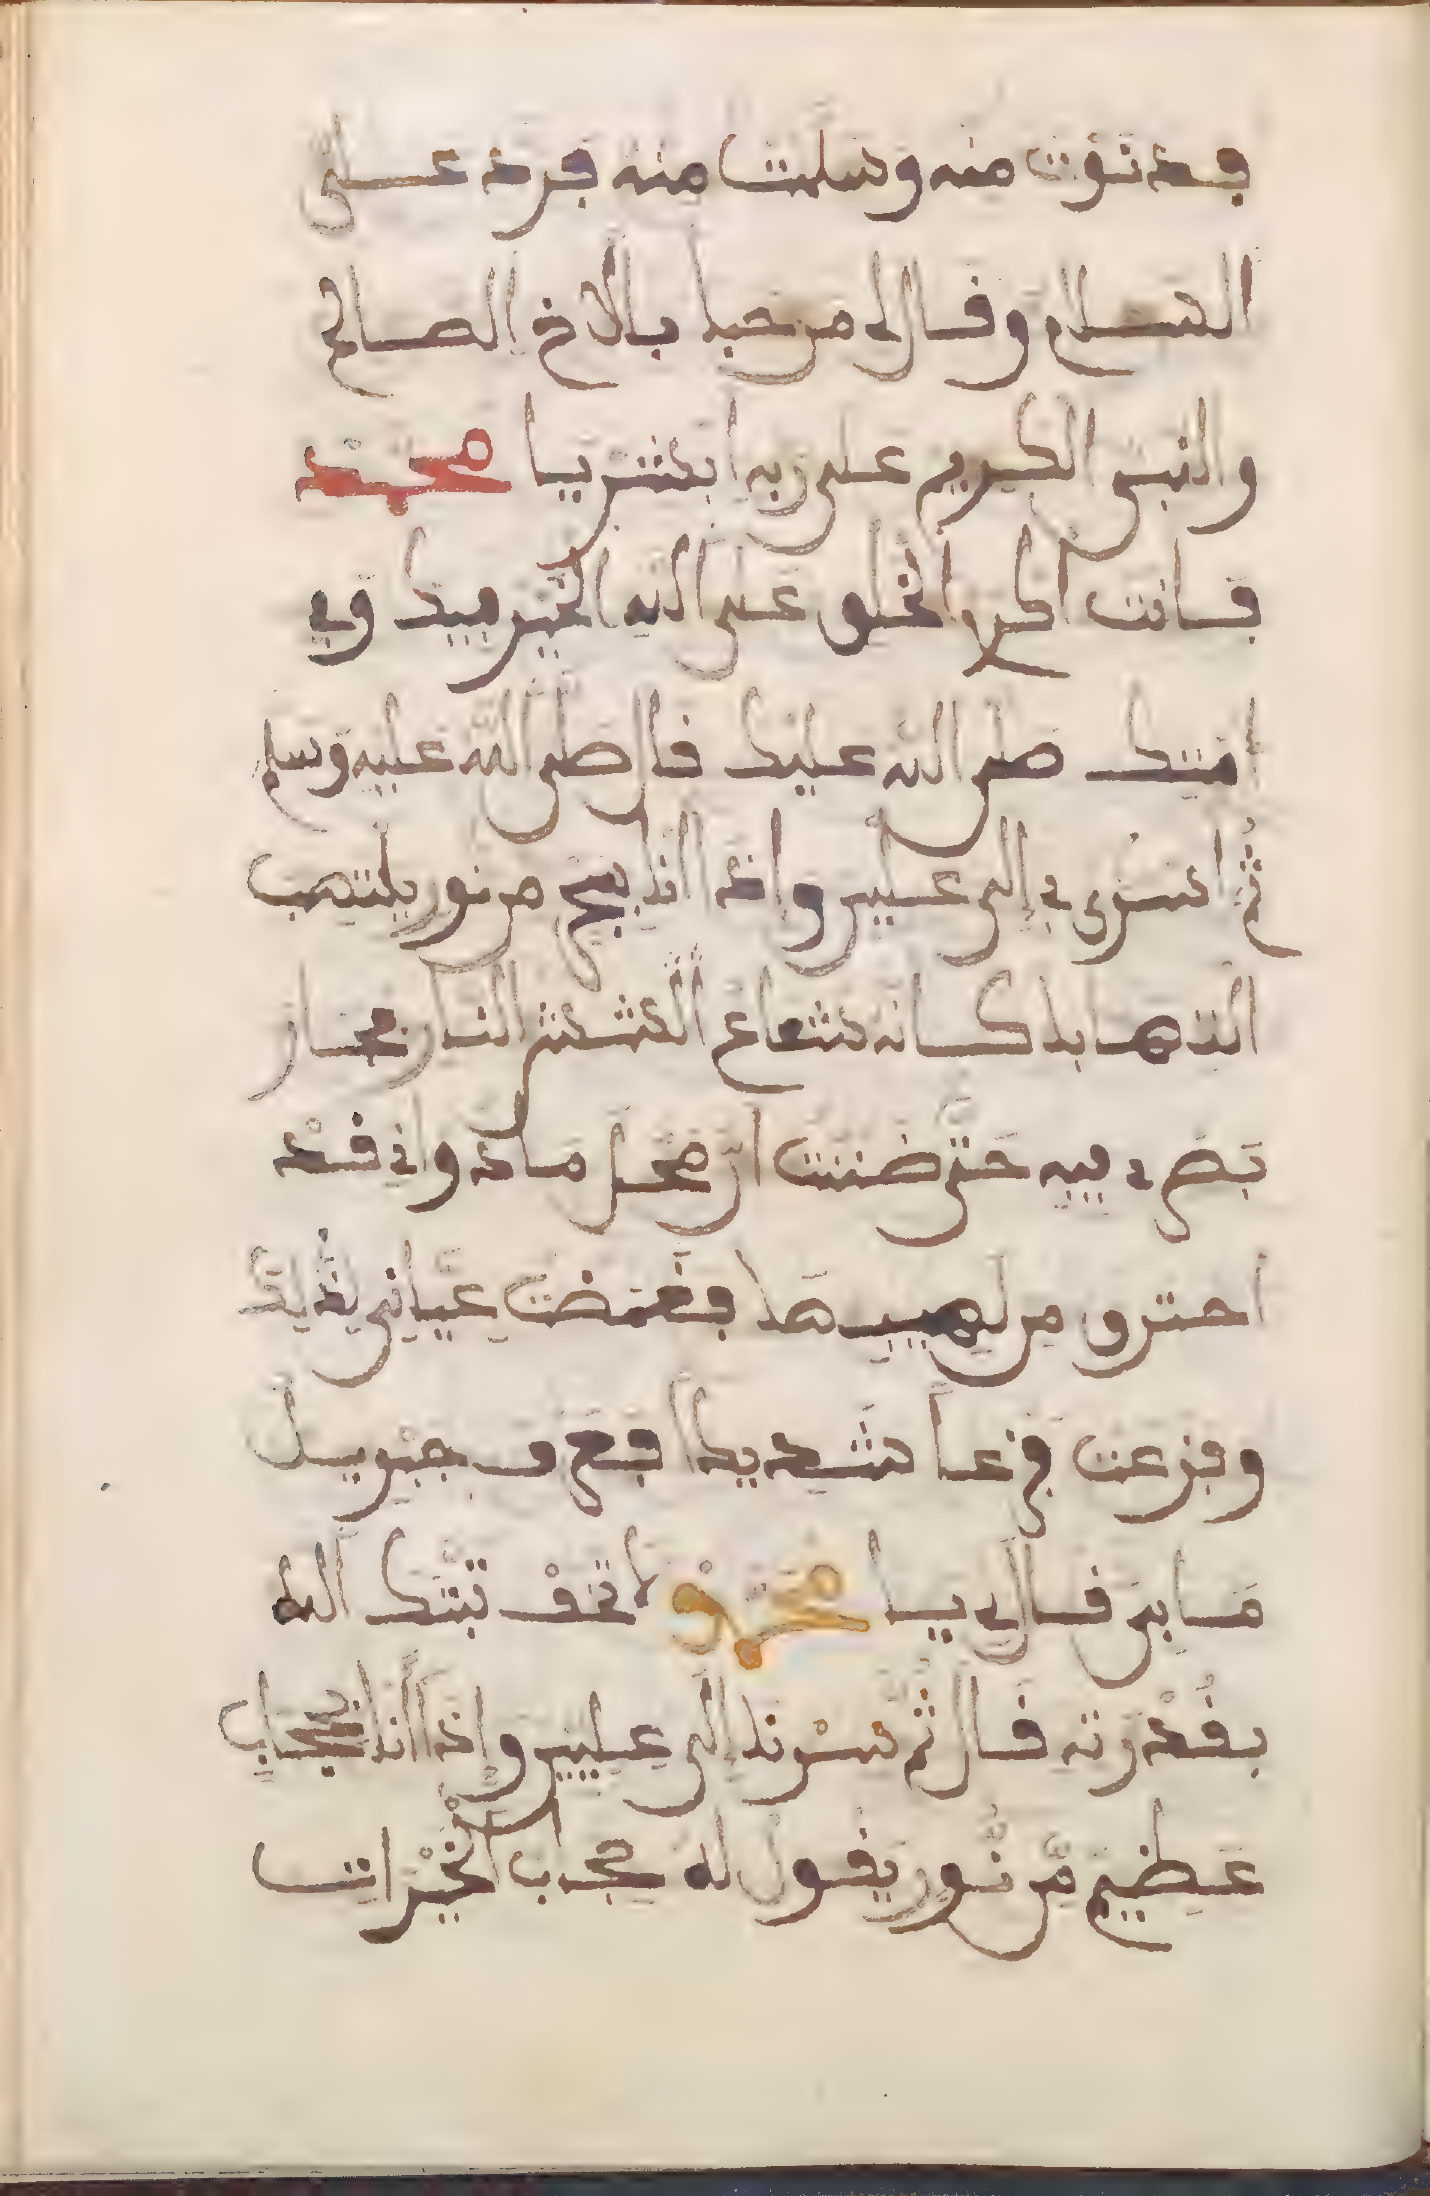 فدنوت منه وسلمت منه فرد علي
السلام وقال لي مرحبا بالاخ الصالح
والنبي الكريم على ربه ابشر يا محمد
فانت اكرم الخلق على الله الخير فيك وفي
امتك صلى الله عليك قال صلى الله عليه وسلم
ثم اسري بي إلى عليين واذا انا ببحر من نور يلتهب
التهابا كانه شعاع الشمس النار فحار
بصري فيه حتى ضننت ان كل ما واني قد
احترق من لهيبها فغمضت عياني
وفزعت فزعا شديدا فعرف جبريل
ما بي فقال لي يا محمد لا تخف ثبتك الله
بقدرته قال ثم سرنا إلى عليين وإذا أنا بحجاب
عظيم من نور يقول له حجاب الخيرات